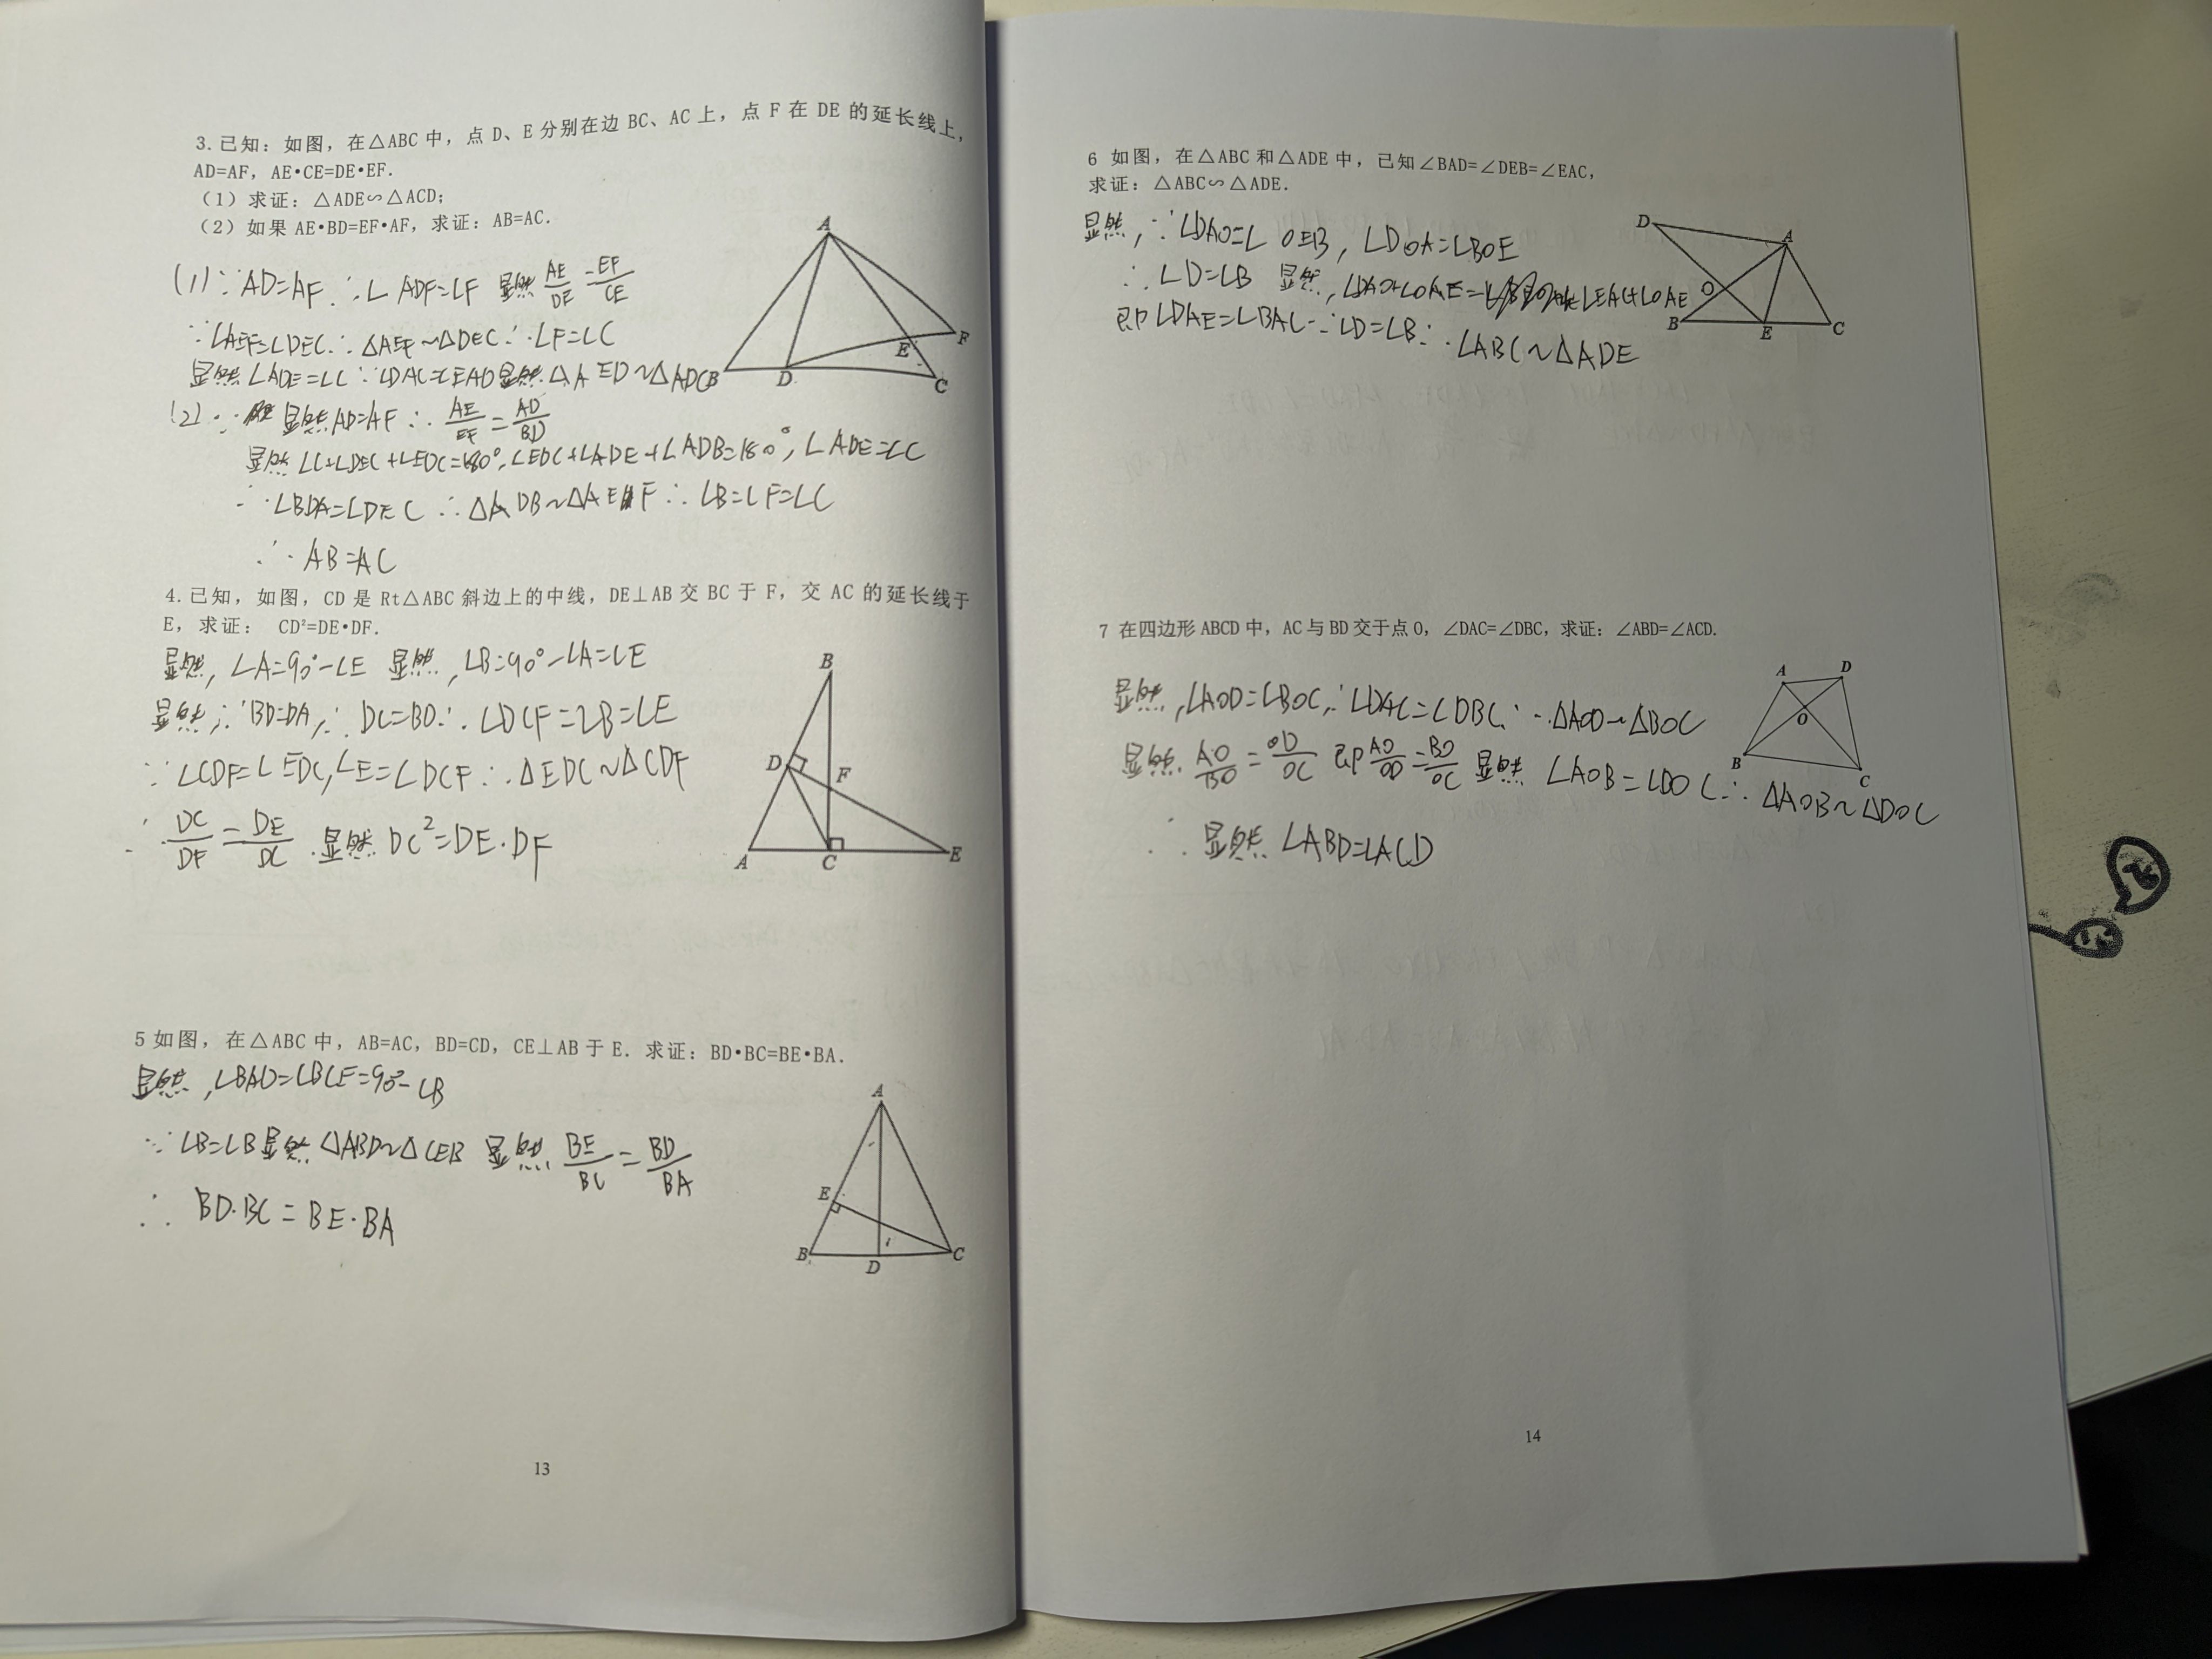 3.已知：如图，在△ABC中，点D、E分别在边BC、AC上，点F在DE的延长线上，
AD=AF，AE•CE=DE•EF.
（1）求证：△ADE∽△ACD；
（2）如果AE•BD=EF•AF，求证：AB=AC.
(1)∵AD=AF ∴∠ADF=∠F 显然 AE/DE=EF/CE
∵∠AEF=∠DEC ∴△AEF~△DEC ∴∠F=∠C
显然∠ADE=∠C ∵∠DAC=∠EAD 显然△AED~△ADC
(2)∵ 显然AD=AF ∴ AE/EF=AD/BD
显然∠C+∠DEC+∠EDC=180°,∠EDC+∠ADE+∠ADB=180°,∠ADE=∠C
∴∠BDA=∠DEC ∴△ADB~△AEF ∴∠B=∠F=∠C
∴AB=AC
A
B
D
E
C
F
4.已知，如图，CD是Rt△ABC斜边上的中线，DE⊥AB交BC于F，交AC的延长线于
E，求证： CD²=DE•DF.
显然,∠A=90°-∠E 显然,∠B=90°-∠A=∠E
显然,∵BD=DA,∴DC=BD∴∠DCF=∠B=∠E
∵∠CDF=∠EDC,∠E=∠DCF∴△EDC~△CDF
∴DC/DF=DE/DC.显然DC²=DE·DF
B
D
F
A
C
E
5如图，在△ABC中，AB=AC，BD=CD，CE⊥AB于E．求证：BD•BC=BE•BA．
显然,∠BAD=∠BCE=90°-∠B
∵∠B=∠B显然△ABD~△CEB 显然 BE/BC=BD/BA
∴BD·BC=BE·BA
A
E
B
D
C
13
6 如图，在△ABC和△ADE中，已知∠BAD=∠DEB=∠EAC，
求证：△ABC∽△ADE．
显然,∵∠DAO=∠OEB,∠DOA=∠BOE
∴∠D=∠B 显然,∠DAO+∠OAE=∠EAC+∠OAE
即∠DAE=∠BAC∵∠D=∠B∴∠ABC~△ADE
D
A
O
B
E
C
7 在四边形ABCD中，AC与BD交于点O，∠DAC=∠DBC，求证：∠ABD=∠ACD.
显然,∠AOD=∠BOC,∵∠DAC=∠DBC∴△AOD~△BOC
显然 AO/BO=OD/OC 即AO/OD=BO/OC 显然∠AOB=∠DOC∴△AOB~△DOC
∴显然∠ABD=∠ACD
A
D
O
B
C
14